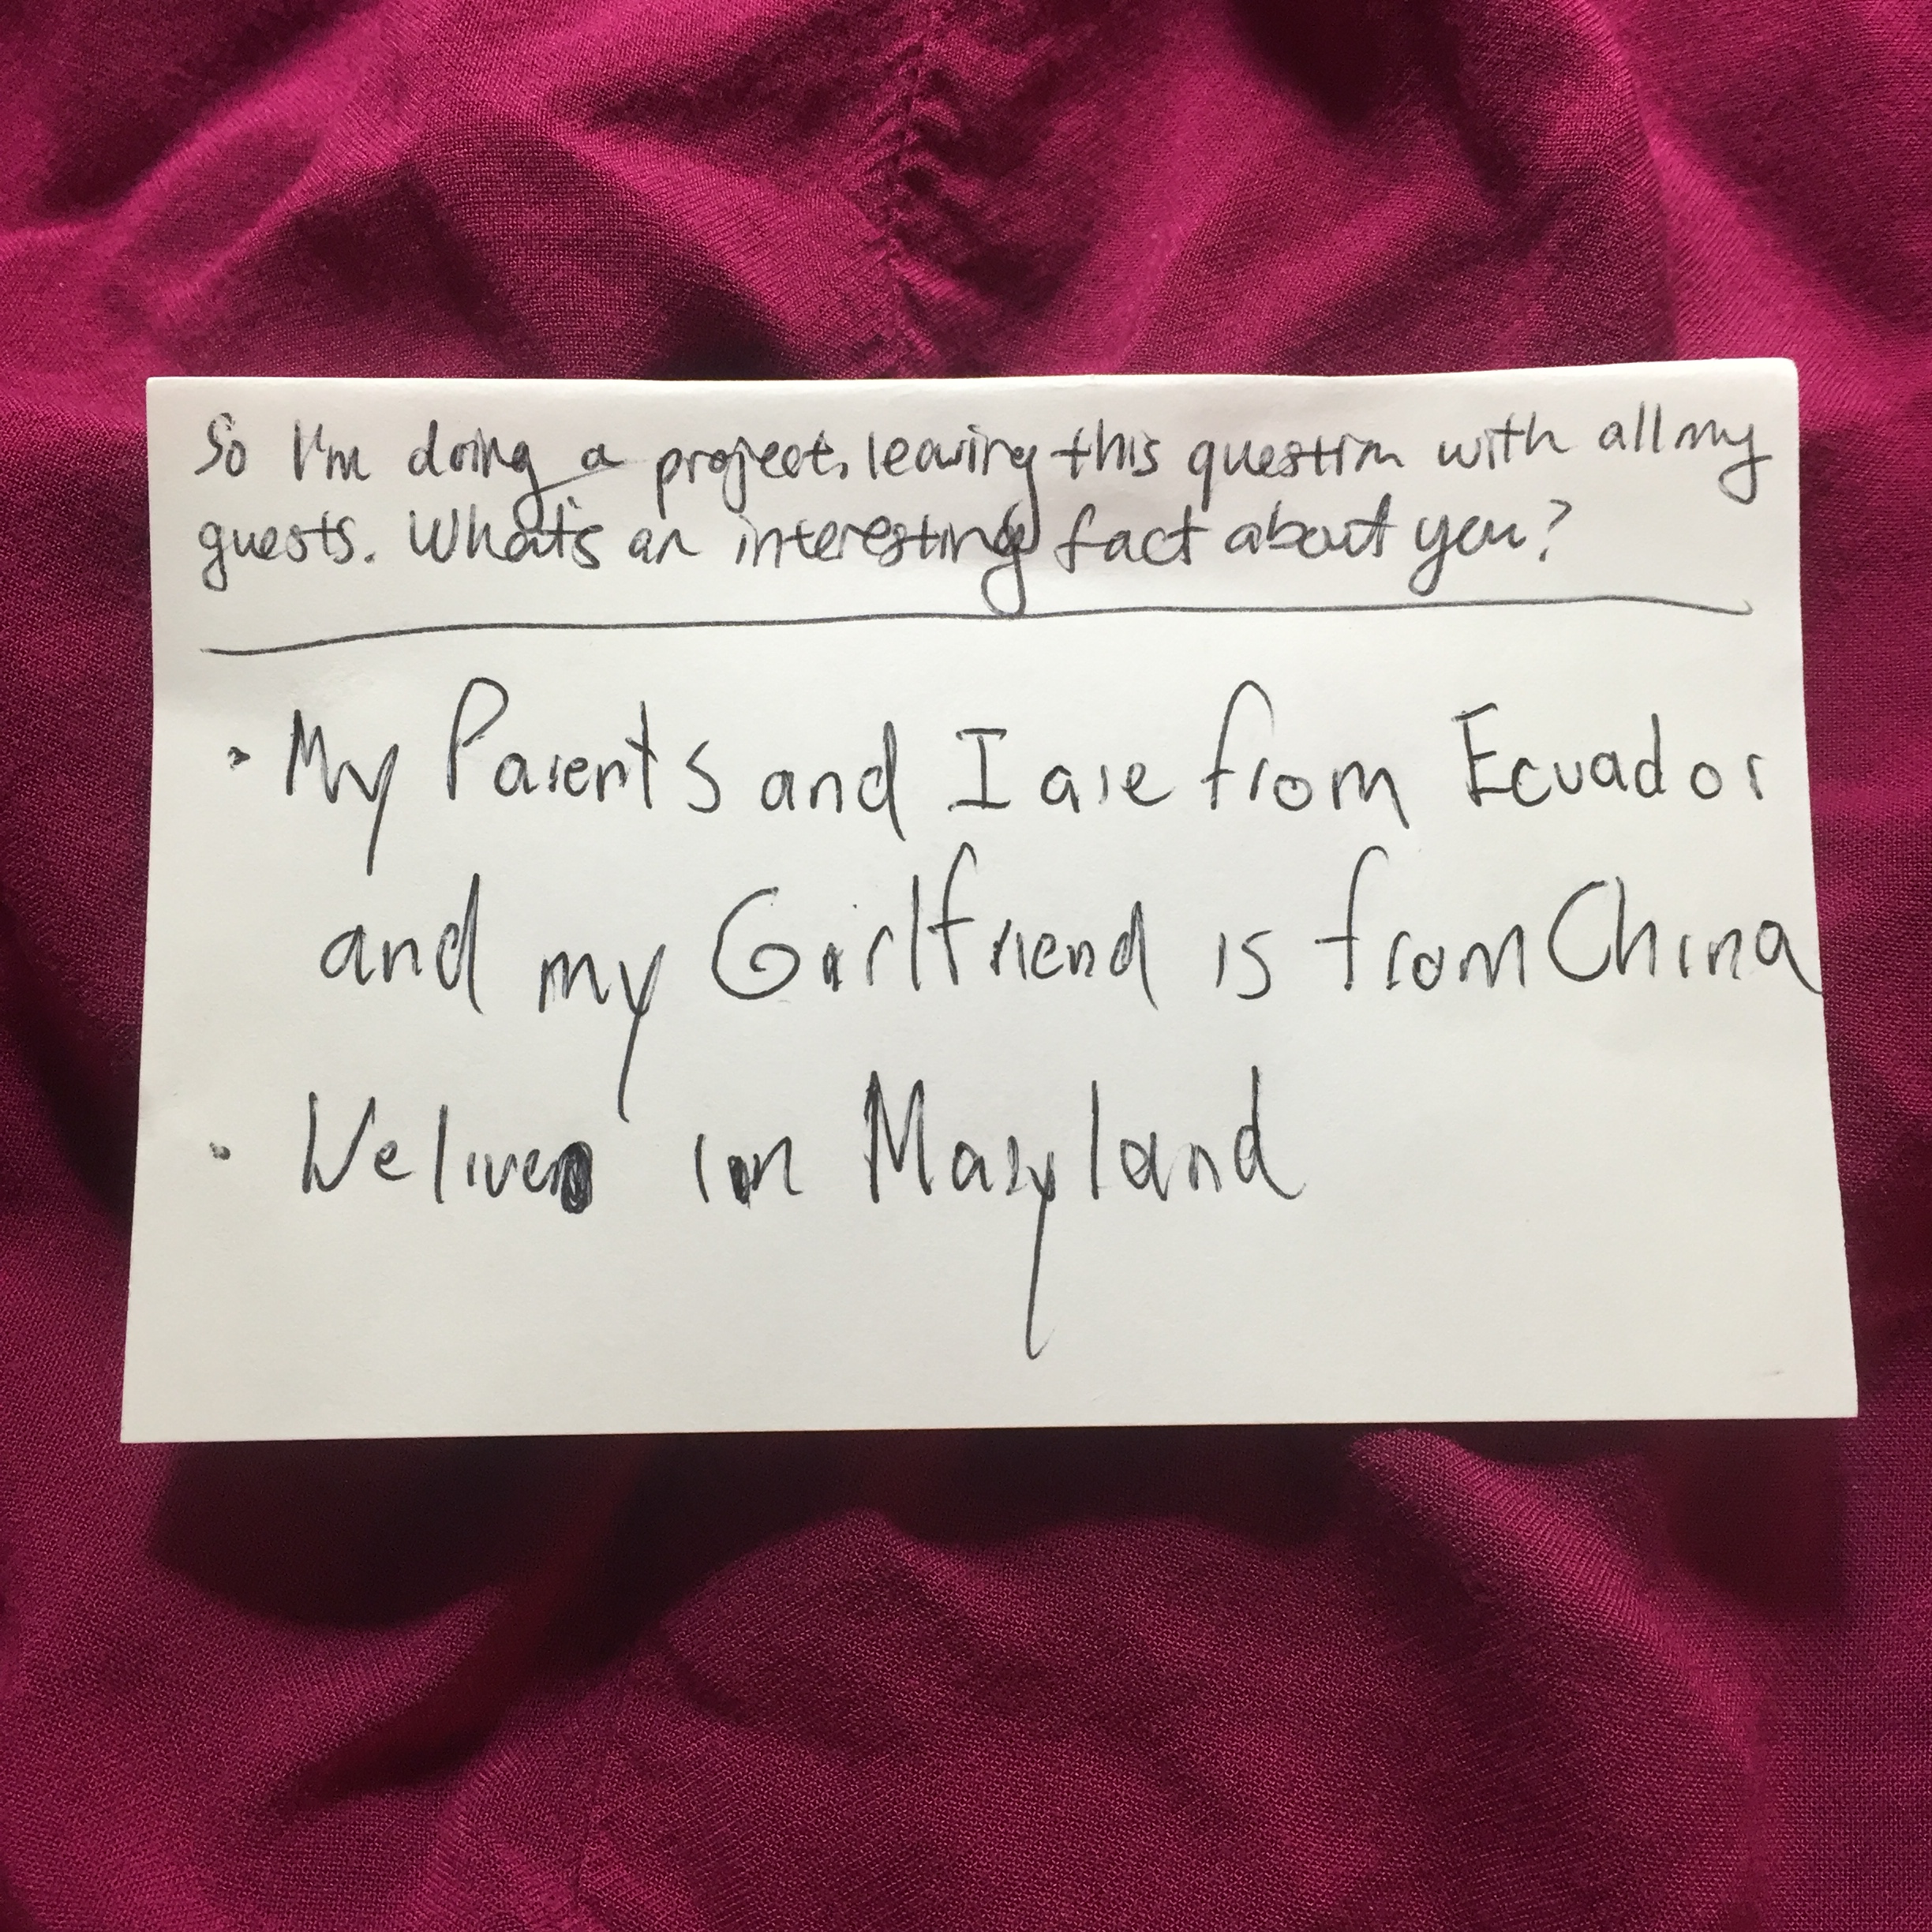 So I'm doing a project, leaving this question with all my
guests. What's an interesting fact about you?
• My Parents and I are from Ecuador
and my Girlfriend is from China
• We live in Maryland